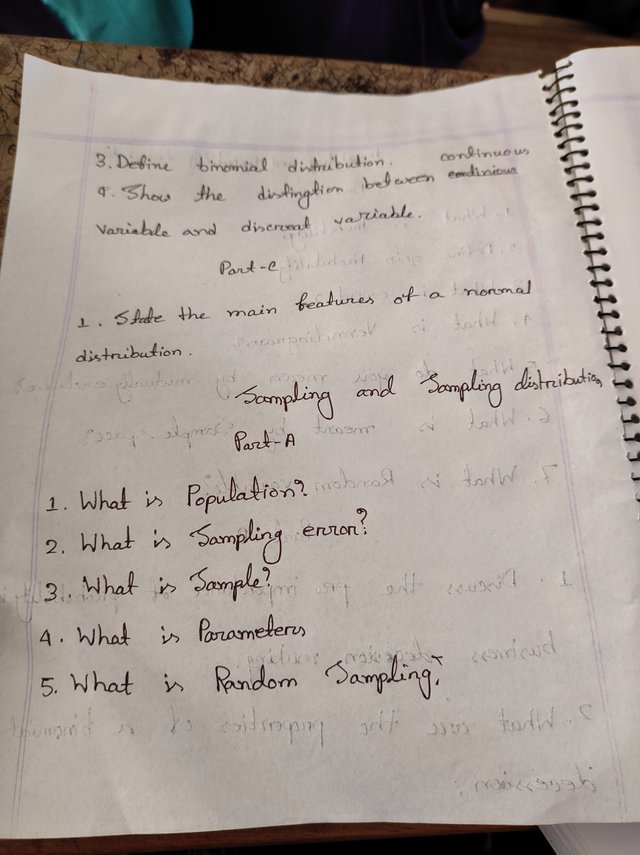 3. Define binomial distribution.
4. Show the distingtion between continuous
variable and discreat variable.
Part-C
1. State the main features of a normal
distribution.
Sampling and Sampling distribution
Part-A
1. What is Population?
2. What is Sampling error?
3. What is Sample?
4. What is Parameters
5. What is Random Sampling?